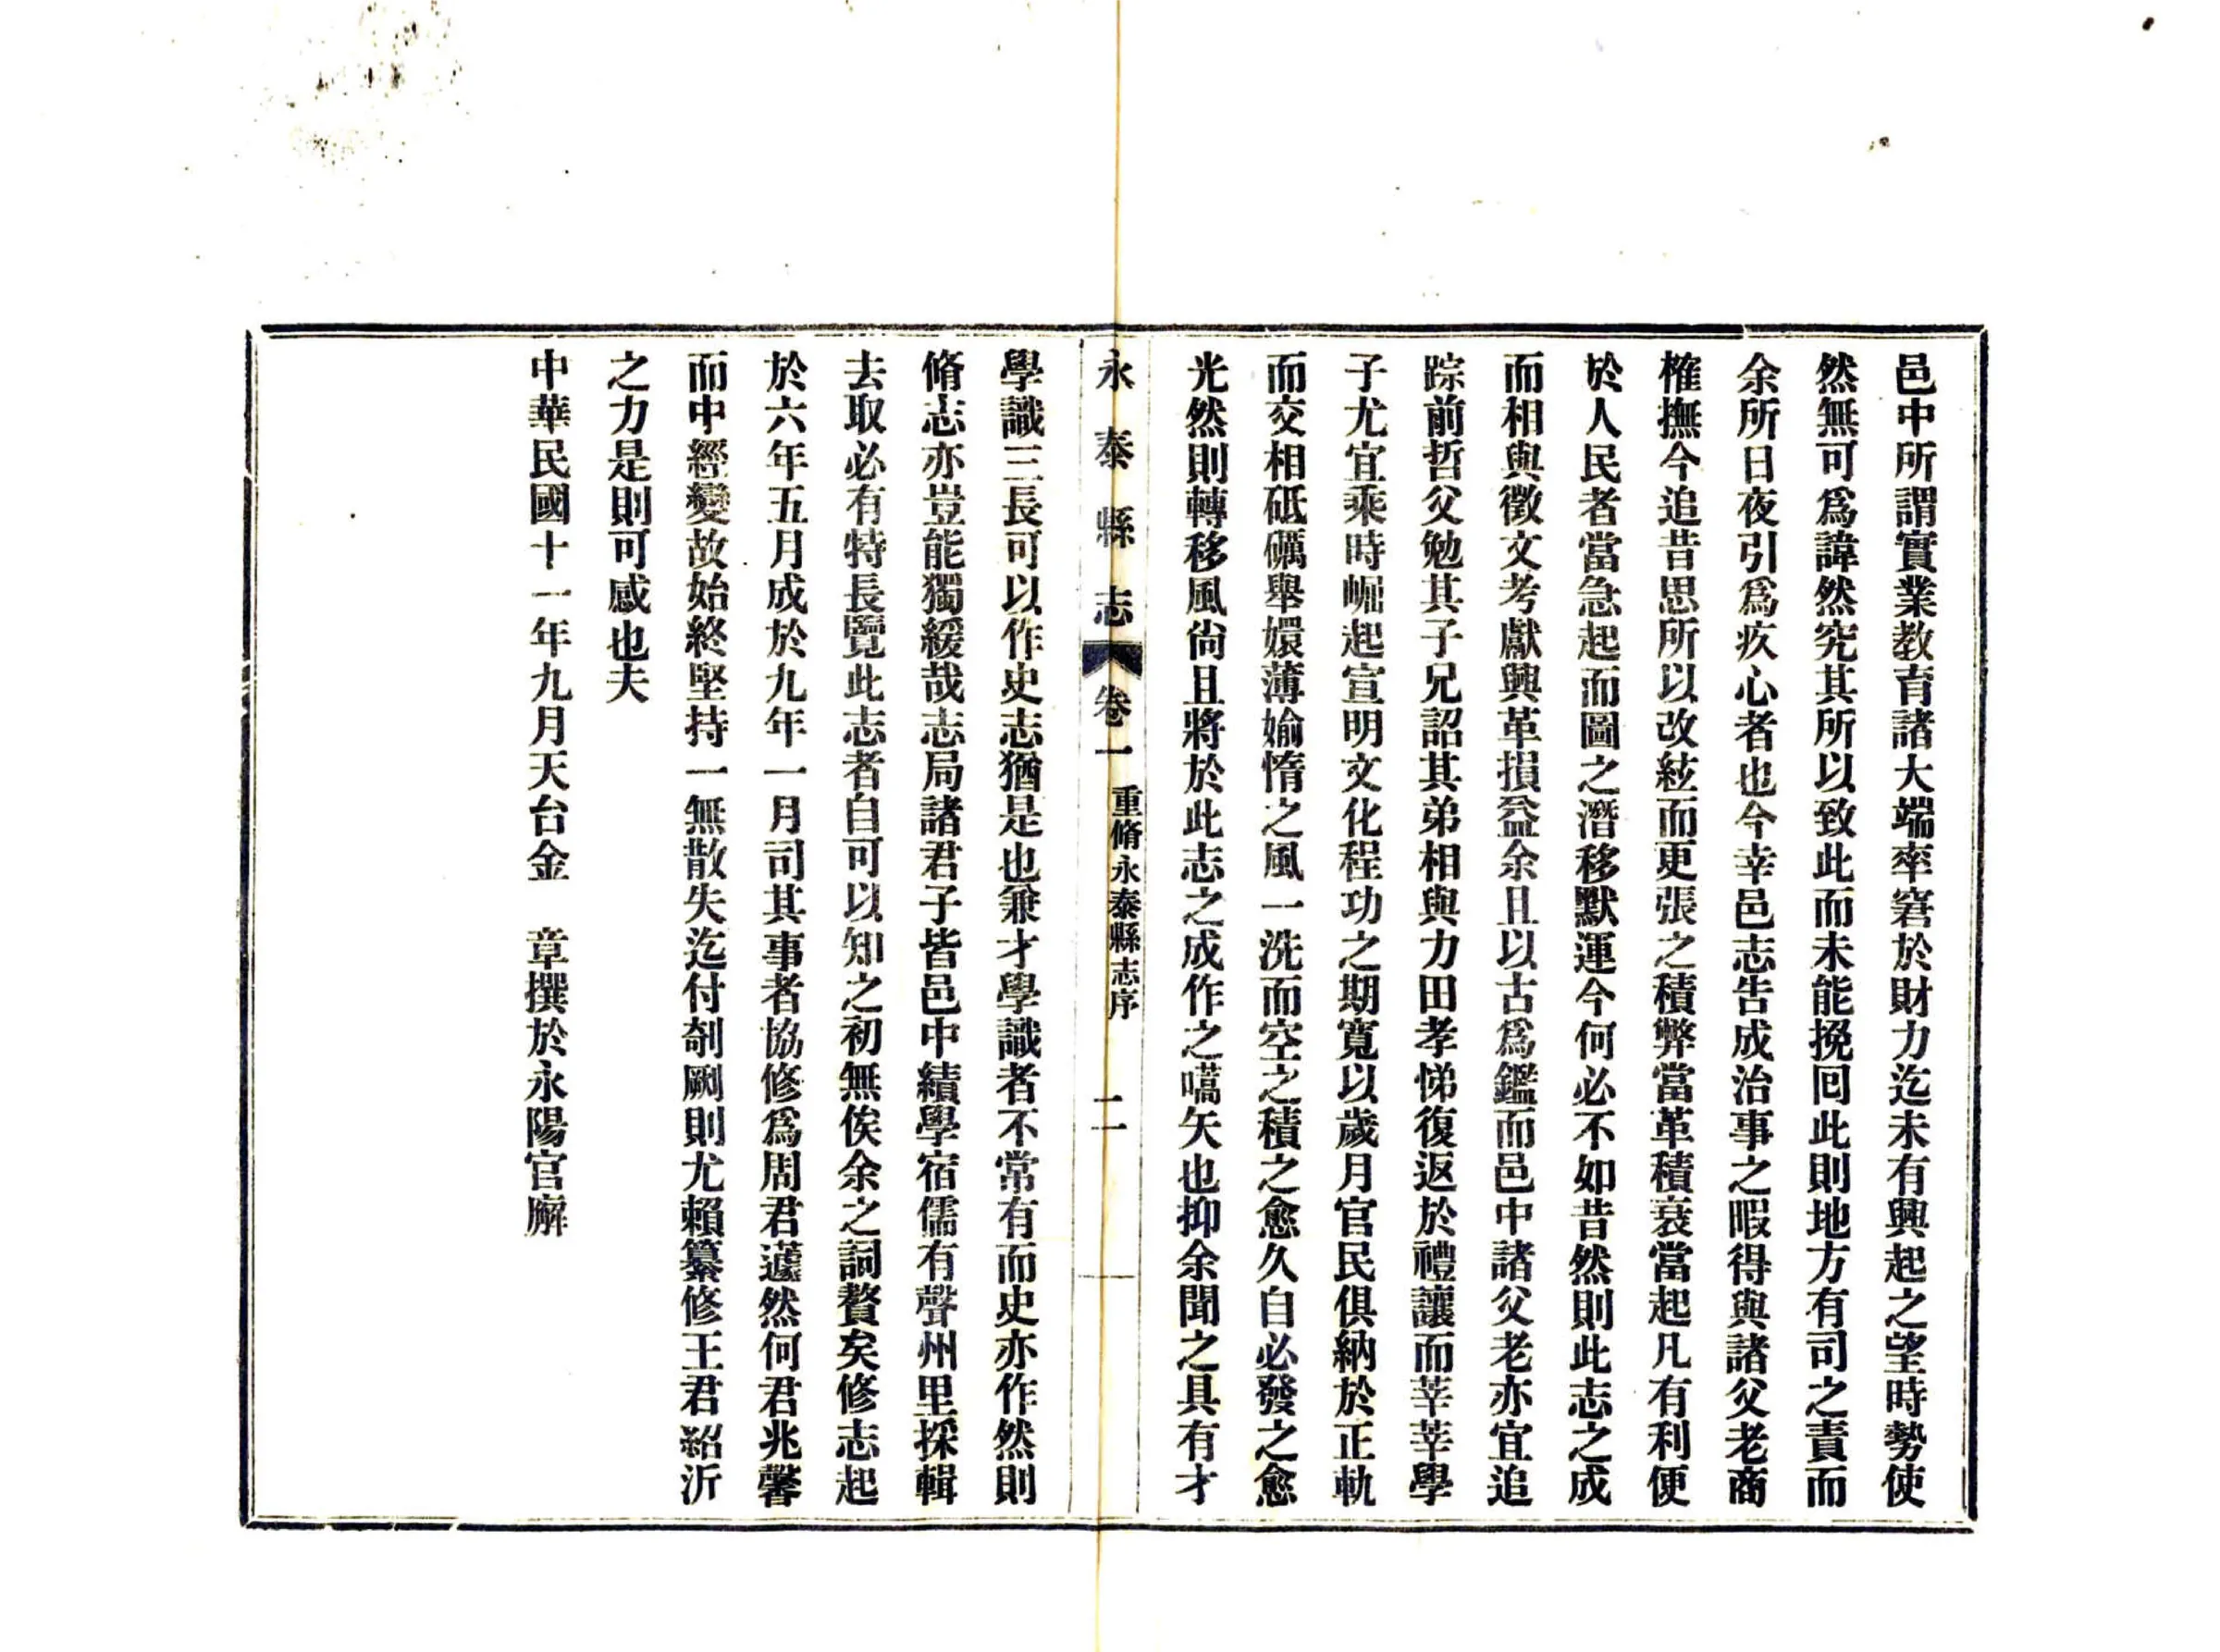 邑中所謂實業教育諸大端率窘於財力迄未有興起之望時勢使
然無可爲諱然究其所以致此而未能挽回此則地方有司之責而
余所日夜引爲疚心者也今幸邑志告成治事之暇得與諸父老商
榷撫今追昔思所以改絃而更張之積弊當革積衰當起凡有利便
於人民者當急起而圖之潛移默運今何必不如昔然則此志之成
而相與徵文考獻興革損益余且以古爲鑑而邑中諸父老亦宜追
踪前哲父勉其子兄詔其弟相與力田孝悌復返於禮讓而莘莘學
子尤宜乘時崛起宣明文化程功之期寬以歲月官民俱納於正軌
而交相砥礪舉嬛薄婾惰之風一洗而空之積之愈久自必發之愈
光然則轉移風尙且將於此志之成作之嚆矢也抑余聞之具有才
永泰縣志 卷一 重脩永泰縣志序 二
學識三長可以作史志猶是也兼才學識者不常有而史亦作然則
脩志亦豈能獨緩哉志局諸君子皆邑中績學宿儒有聲州里採輯
去取必有特長覽此志者自可以知之初無俟余之詞贅矣修志起
於六年五月成於九年一月司其事者協修爲周君蘧然何君兆馨
而中經變故始終堅持一無散失迄付剞劂則尤賴纂修王君紹沂
之力是則可感也夫
中華民國十一年九月天台金 章撰於永陽官廨